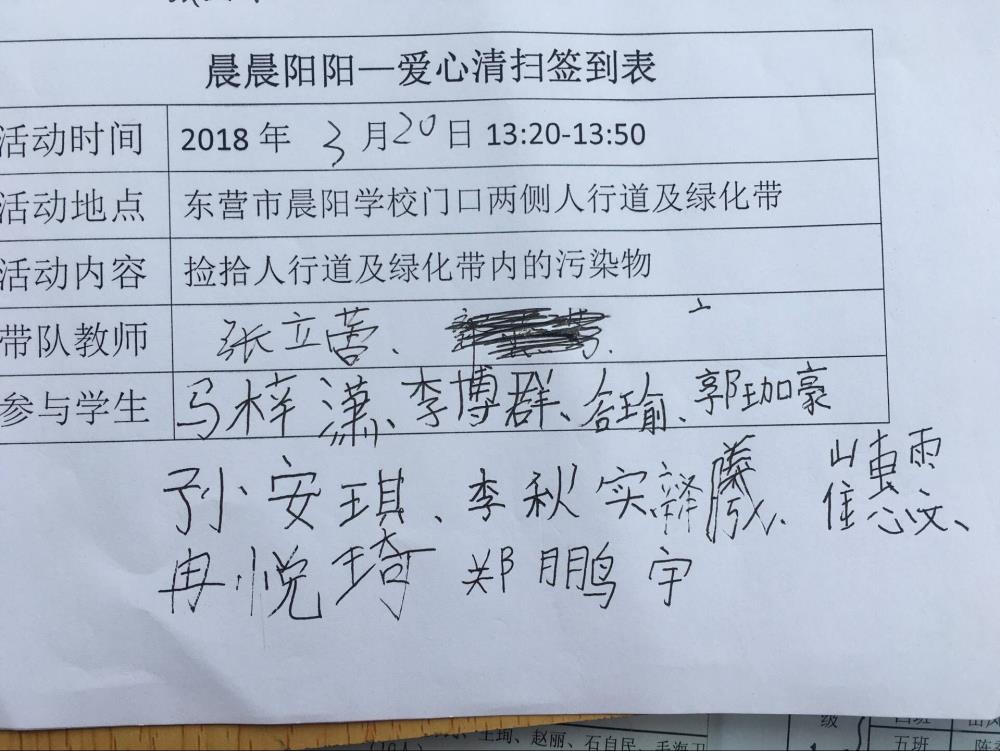 晨晨阳阳一爱心清扫签到表
活动时间 2018 年 3 月 20 日 13:20-13:50
活动地点 东营市晨阳学校门口两侧人行道及绿化带
活动内容 捡拾人行道及绿化带内的污染物
带队教师 张立蕾、
参与学生 马梓潇、李博群、郭珈豪
孙安琪、李秋实、崔惠雯、
冉悦琦 郑鹏宇
级 五班
赵丽、石自民、毛海卫